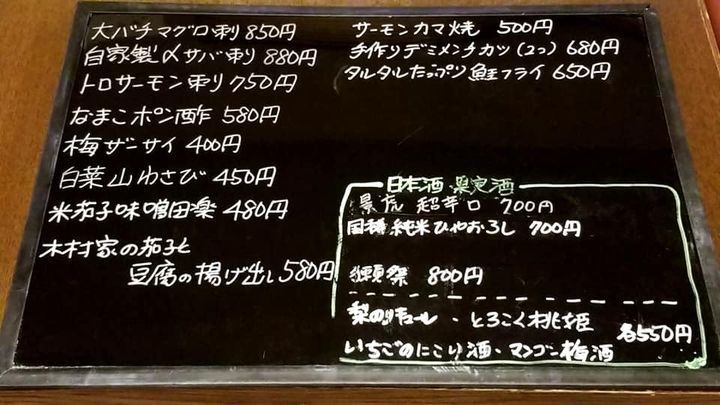 大バチマグロ刺 850円
自家製〆サバ刺り 880円
トロサーモン刺り 750円
なまこポン酢 580円
梅ザーサイ 400円
白菜山わさび 450円
米茄子味噌田楽 480円
木村家の茄子と
豆腐の揚げ出し 580円
サーモンカマ焼 500円
手作りデミメンチカツ(2つ) 680円
タルタルたっぷり鮭フライ 650円
日本酒 限定酒
景虎 超辛口 700円
国稀 純米ひやおろし 700円
獺祭 800円
梨のリキュール・とろこく桃姫
各550円
いちごのにごり酒・マンゴー梅酒